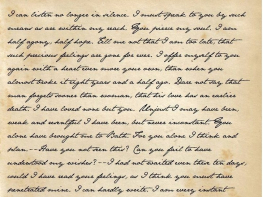 I can listen no longer in silence. I must speak to you by such
means as are within my reach. You pierce my soul. I am
half agony, half hope. Tell me not that I am too late, that
such precious feelings are gone for ever. I offer myself to you
again with a heart even more your own, than when you
almost broke it eight years and a half ago. Dare not say that
man forgets sooner than woman, that his love has an earlier
death. I have loved none but you. Unjust I may have been,
weak and resentful I have been, but never inconstant. You
alone have brought me to Bath. For you alone I think and
plan.--Have you not seen this? Can you fail to have
understood my wishes?--I had not waited even these ten days,
could I have read your feelings, as I think you must have
penetrated mine. I can hardly write. I am every instant